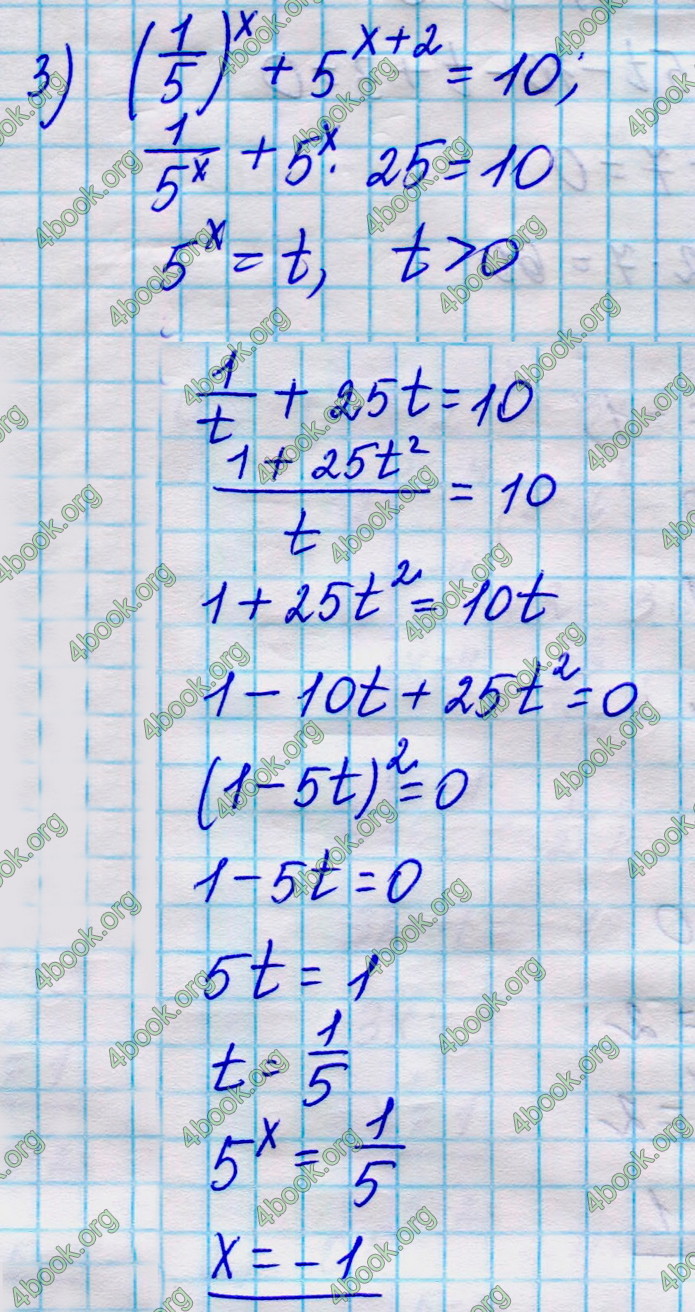 3) (1/5)^x + 5^(x+2) = 10;
1/5^x + 5^x · 25 = 10
5^x = t, t > 0
1/t + 25t = 10
(1 + 25t²)/t = 10
1 + 25t² = 10t
1 - 10t + 25t² = 0
(1 - 5t)² = 0
1 - 5t = 0
5t = 1
t = 1/5
5^x = 1/5
x = -1
4book.org